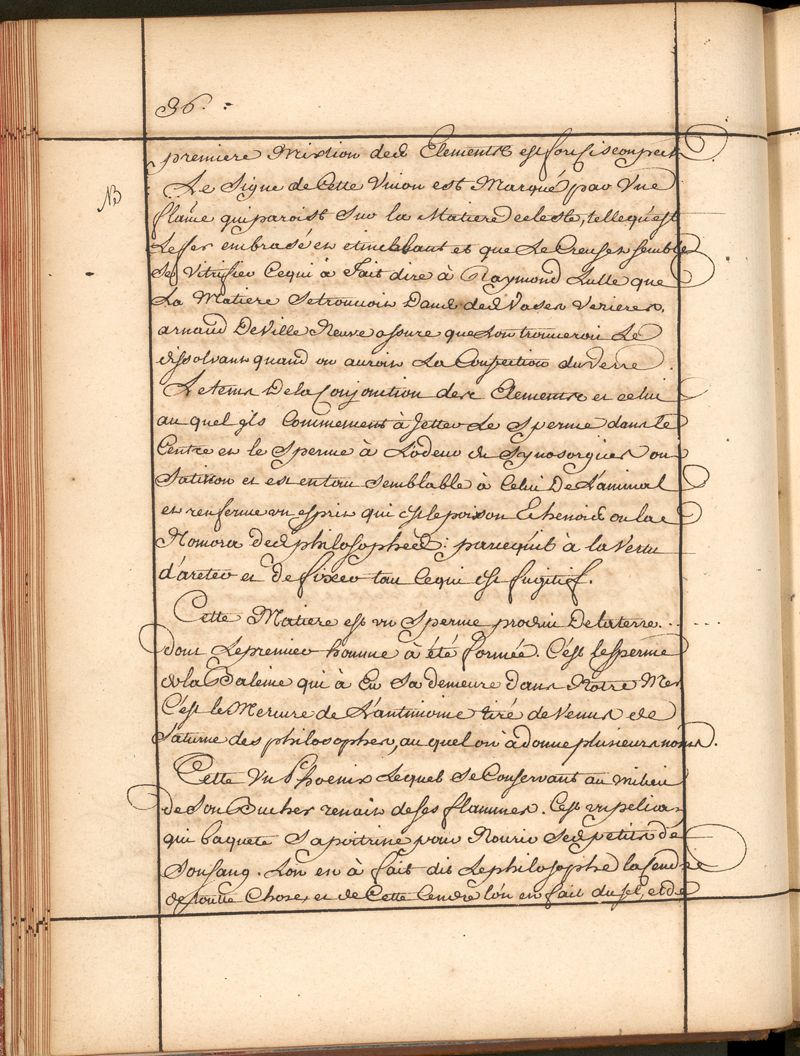 36.
premiere Mixtion des Elements est
NB
Le Signe de Cette Union est Marqué par Une
flame qui paroist Sur la Matiere celeste, telle qu'est
Le fer embrasé en etincellant et que Le Creuset semble
Se Vitrifier Cequi à Fait dire à Raymond Lulle que
La Matiere Setrouvoit Dans des Vases Verieres,
arnaud De Ville Neuve assure que Lon trouveroit Le
dissolvant quand on auroit La Confection du Verre
Le tems De la Conjonction des Elements et celui
au quel ils Commencent à Jetter Le Sperme dans le
Centre et le Sperme à L'odeur de ou
Satirion et est en tout semblable à Celui De L'animal
et renferme un esprit qui est le poison ou la
Romora des philosophes: parcequ'il à la Vertu
d'areter et de fixer tou Cequi est fugitif.
Cette Matiere est un Sperme produit De la terre...
dont Le premier homme à été formée. C'est le sperme
de la Baleine qui à Eu Sa demeure dans Notre Mer
C'est le Mercure de L'antimoine tiré de Venus et de
Saturne des philosophes, au quel on à donne plusieurs noms.
Cette Un Phoenix Lequel Se Conservant au milieu
de Son Bucher renait de ses flammes. C'est un pelican
qui baquete Sa poitrine pour Nourir Ses petits de
Son Sang. L'on en à fait dit Le philosophe la sendre
de toutte Chose, et de Cette Cendre l'on en fait du sel, et de